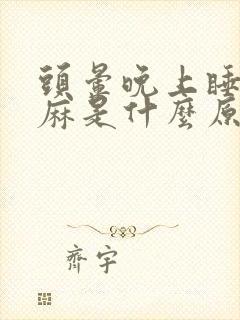 頭暈晚上睡
麻是什麼原
齊宇